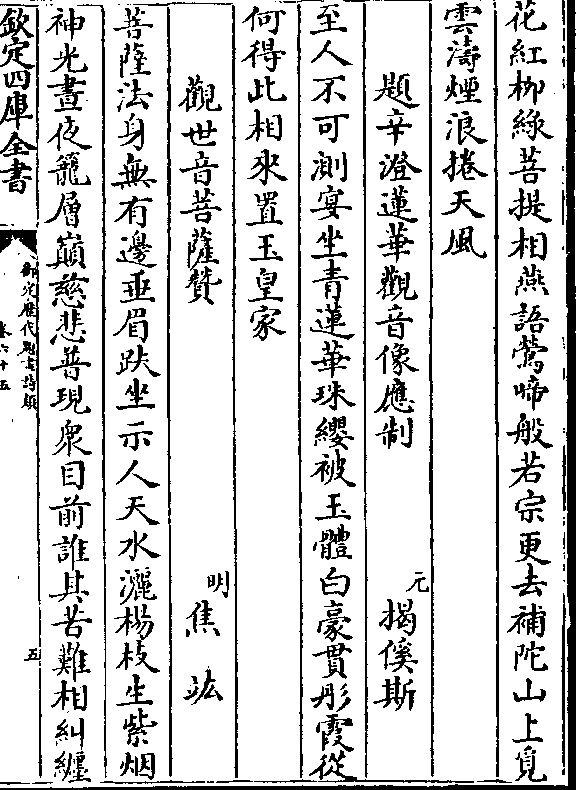 花紅柳綠菩提相燕語鶯啼般若宗更去補陀山上覓
雲濤煙浪捲天風
題辛澄蓮華觀音像應制
元 揭傒斯
至人不可測宴坐青蓮華珠纓被玉體白豪貫彤霞從
何得此相來置玉皇家
觀世音菩薩贊
明 焦竑
菩薩法身無有邊垂眉趺坐示人天水灑楊枝生紫烟
神光晝夜籠層巔慈悲普現衆目前誰其苦難相糾纏
欽定四庫全書
御定歷代題畫詩類
卷六十五
五